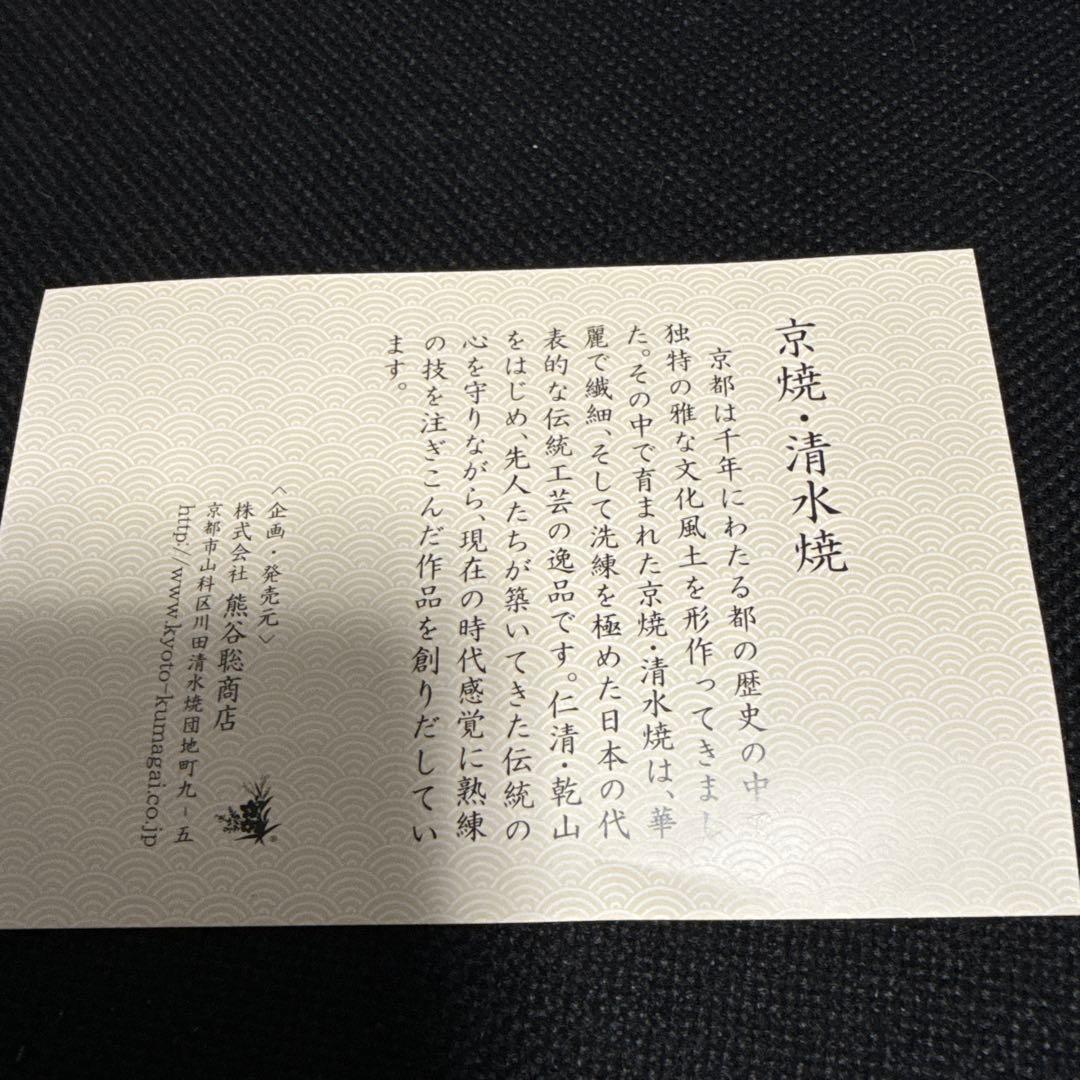 京焼・清水焼
京都は千年にわたる都の歴史の中で
独特の雅な文化風土を形作ってきまし
た。その中で育まれた京焼・清水焼は、華
麗で繊細、そして洗練を極めた日本の代
表的な伝統工芸の逸品です。仁清・乾山
をはじめ、先人たちが築いてきた伝統の
心を守りながら、現在の時代感覚に熟練
の技を注ぎこんだ作品を創りだしてい
ます。
〈企画・発売元〉
株式会社 熊谷聡商店
京都市山科区川田清水焼団地町九-五
http://www.kyoto-kumagai.co.jp